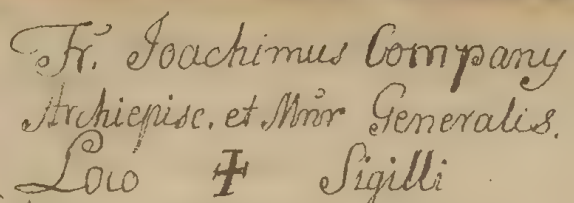 Fr. Joachimus Company
Archiepisc. et Mñr Generalis.
Loco ✝ Sigilli